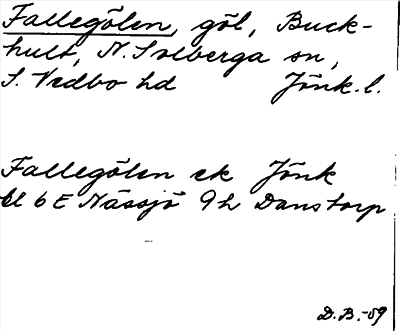 Fallegölen, göl, Buck-
hult, N. Solberga sn,
S. Vedbo hd Jönk. l.
Fallegölen ek Jönk
bl 6 E Nässjö 9 h Danstorp
D.B.-59